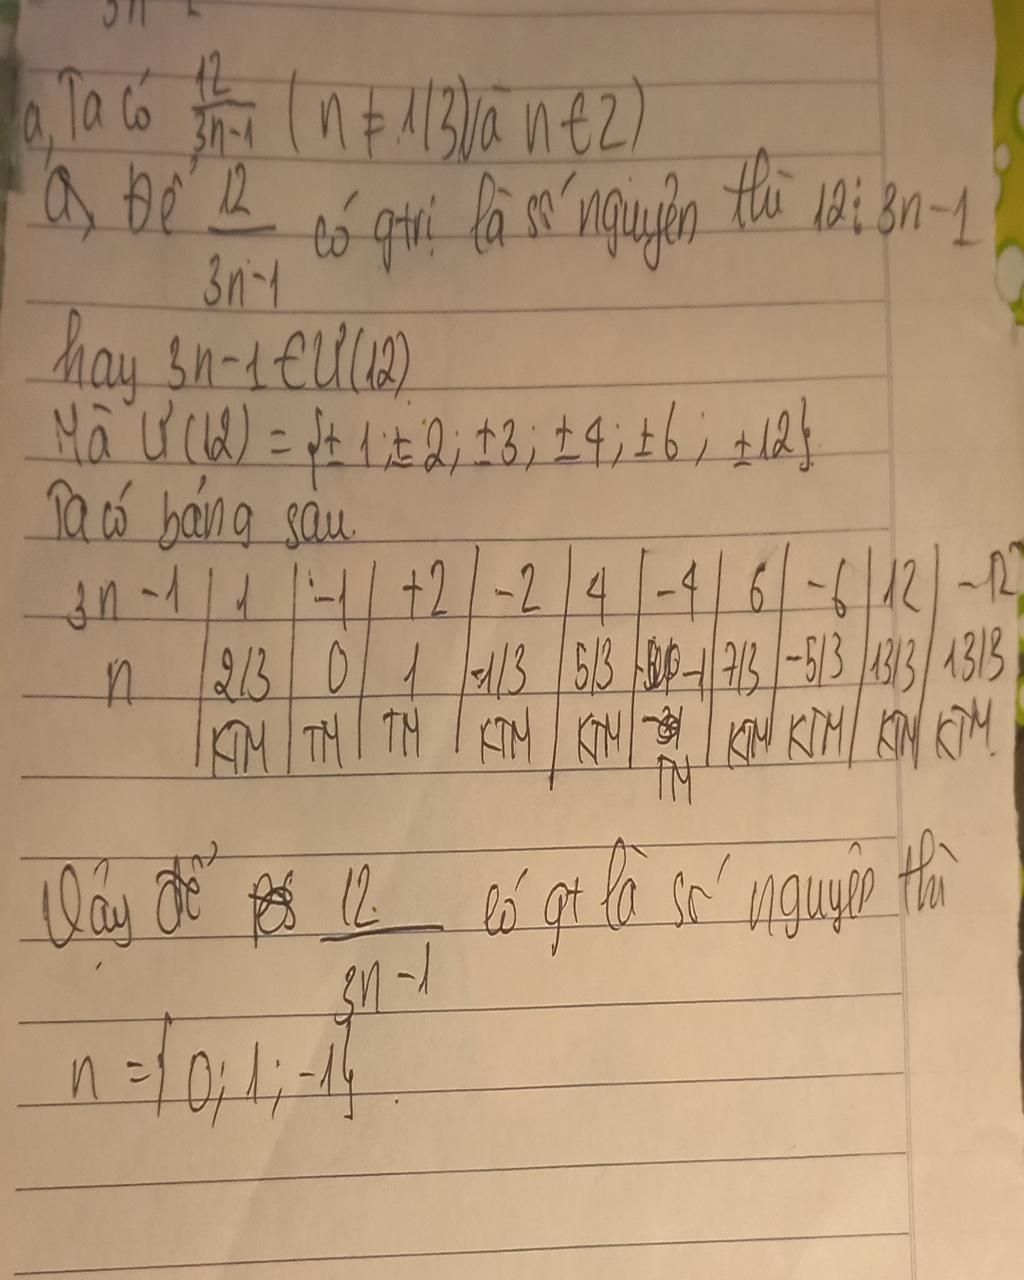 3n - 2
a, Ta có 12/3n-1 ( n ≠ 1/3 và n ∈ Z )
a, Để 12/3n-1 có gtrị là số nguyên thì 12 ⋮ 3n-1
hay 3n-1 ∈ Ư(12)
Mà Ư(12) = {±1; ±2; ±3; ±4; ±6; ±12}
Ta có bảng sau
3n-1 | 1 | -1 | +2 | -2 | 4 | -4 | 6 | -6 | 12 | -12
n | 2/3 | 0 | 1 | -1/3 | 5/3 | -1 | 7/3 | -5/3 | 13/3 | 13/3
KTM | TM | TM | KTM | KTM | TM | KTM | KTM | KTM | KTM
Vậy để 12/3n-1 có gt là số nguyên thì
n = { 0; 1; -1}.